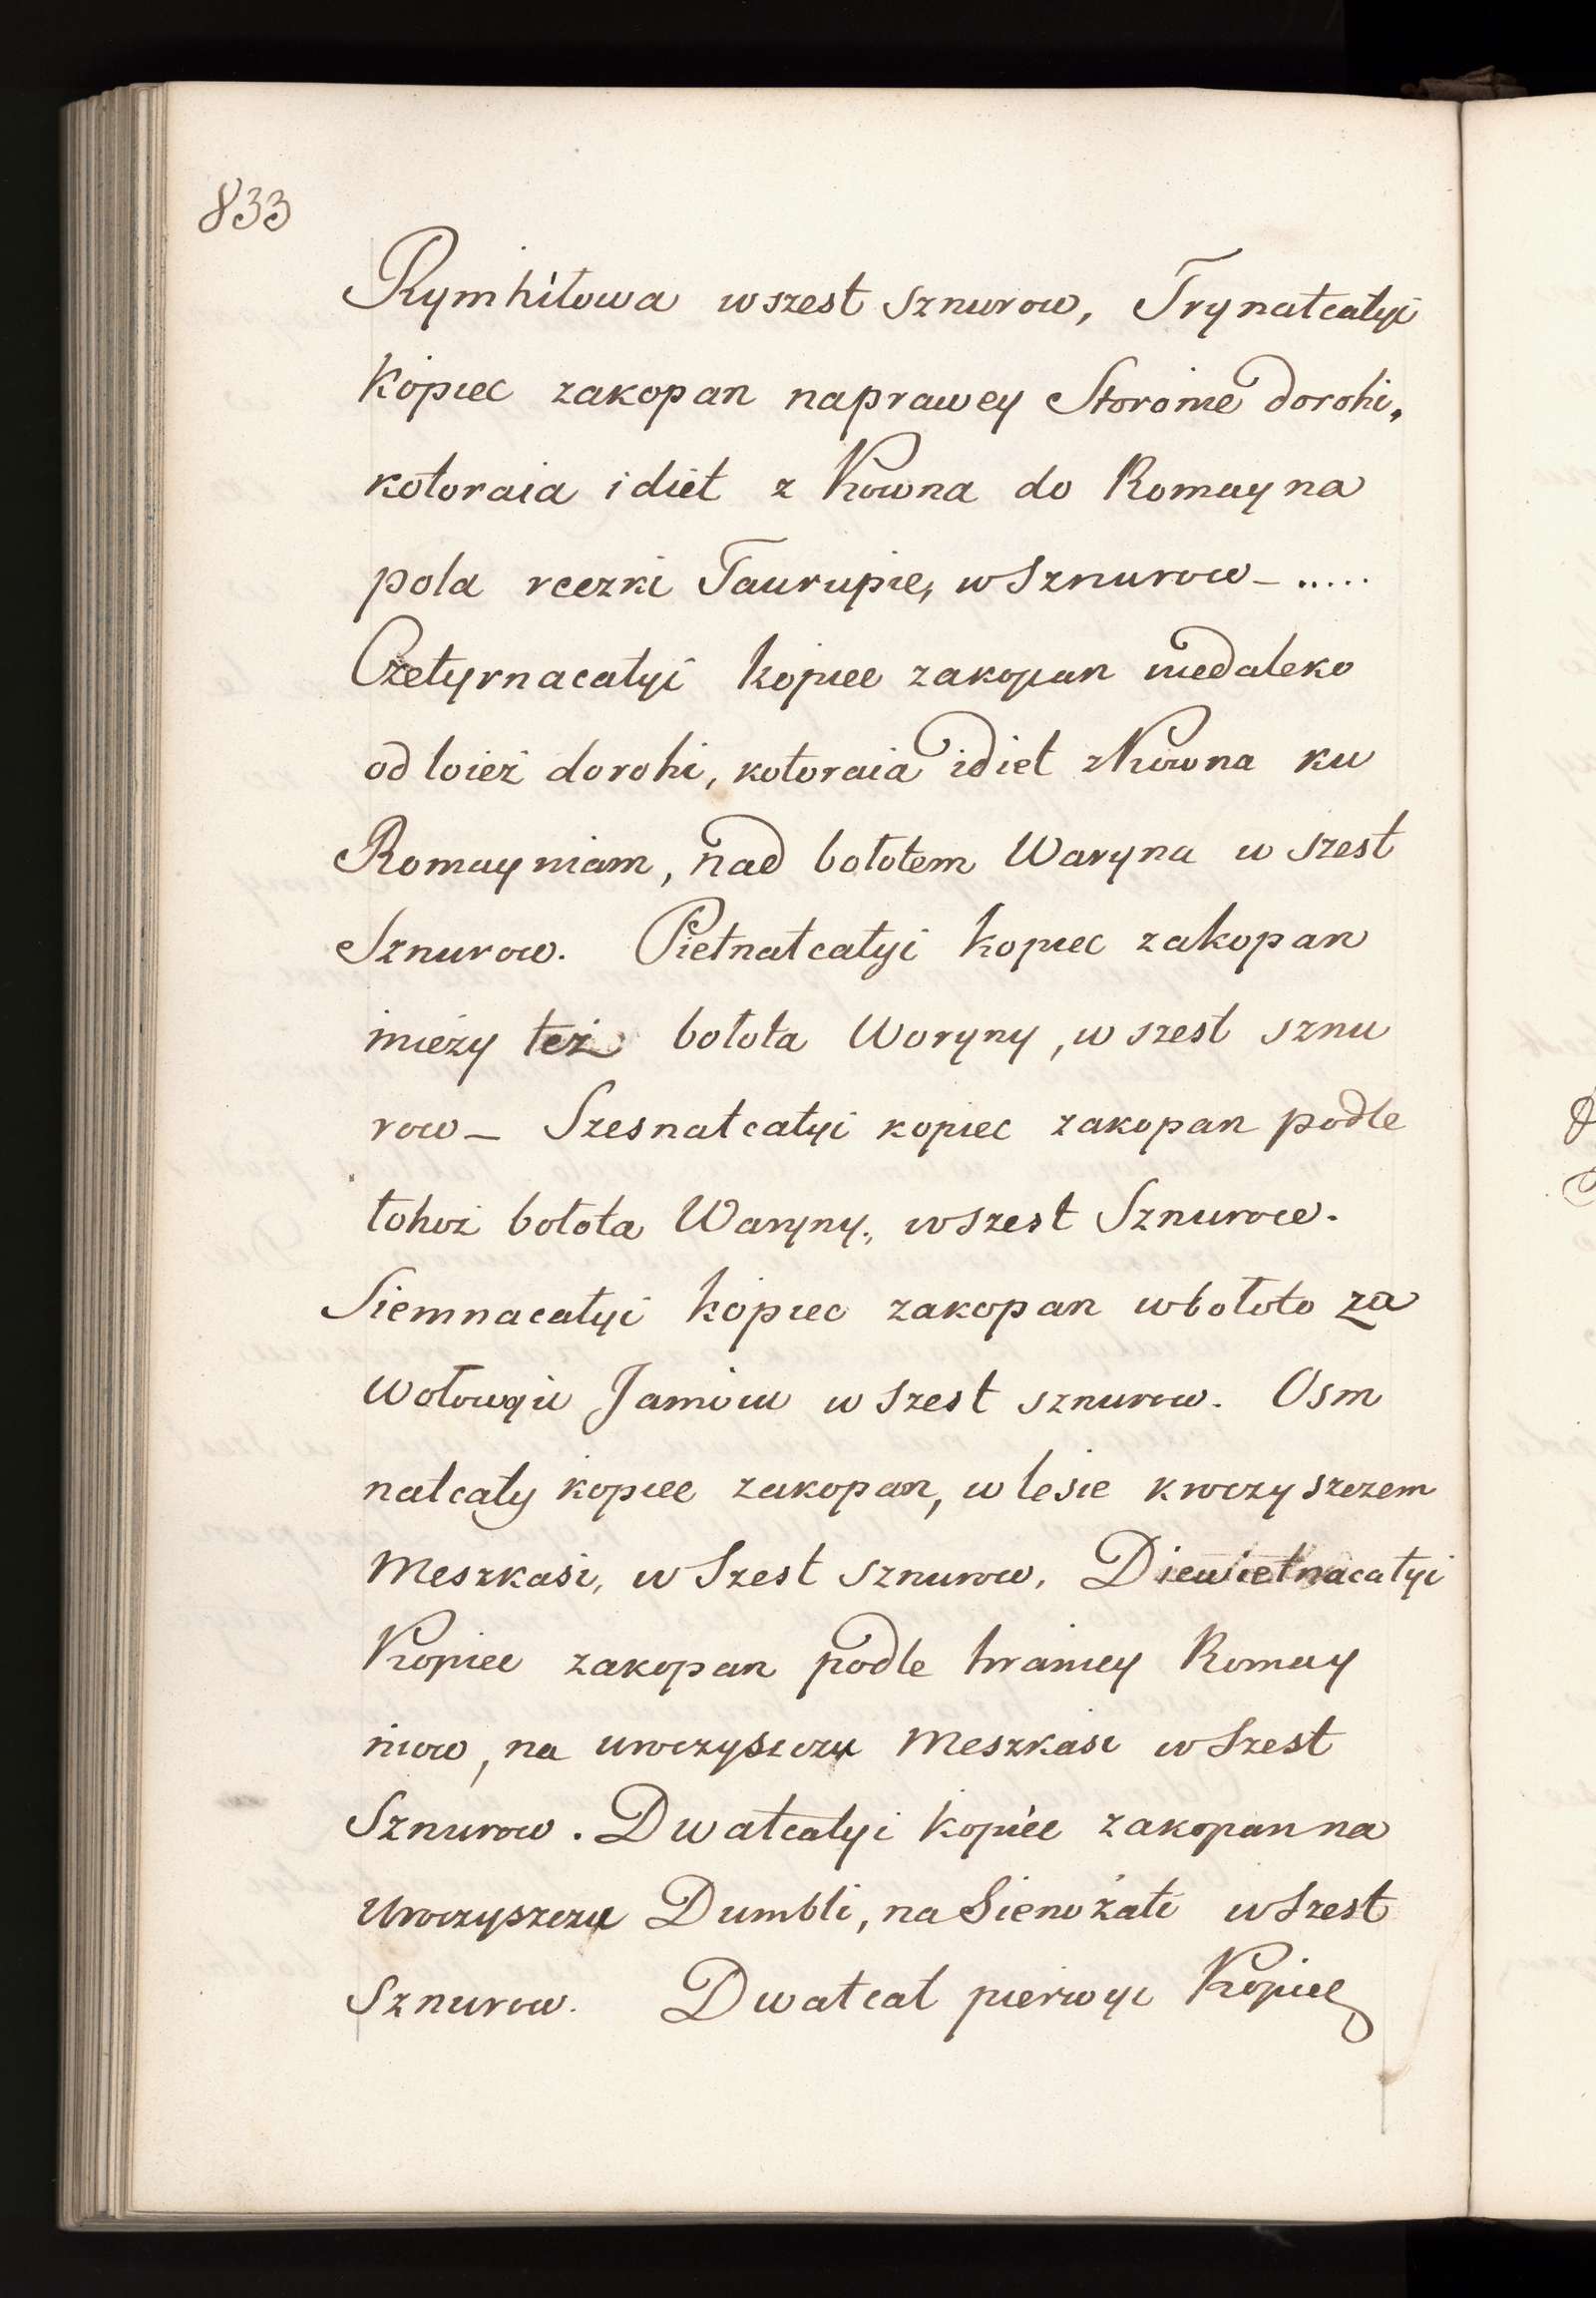 833
Rymhiłowa wszest sznurow, Trynatcatyi
Kopiec zakopan naprawey Storonie dorohi,
kotoraia idiet z Kowna do Romayna
pola reczki Taurupie, wSznurow - .....
Czetyrnacatyi kopiec zakopan niedaleko
od toież dorohi, kotoraia idiet zKowna ku
Romayniam, nad bołotem Waryna w szest
Sznurow. Pietnatcatyi kopiec zakopan
mieży też bołota Woryny, w szest sznu
row - Szesnatcatyi kopiec zakopan podle
tohoż bołota Waryny, wszest Sznurow.
Siemnacatyi kopiec zakopan wbołoto za
Wołowyiu Jamoiu w szest sznurow. Osm
natcaty kopiec zakopan, w lesie kroczyszczem
Meszkasi, w Szest sznurow. Diewietnacatyi
Kopiec zakopan podle hranicy Romay
niow, na uroczyszczu Meszkasi w Szest
Sznurow. Dwatcatyi kopiec zakopan na
Uroczyszczu Dumbli, na Sienożati w Szest
Sznurow. Dwatcat pierwyi Kopiec